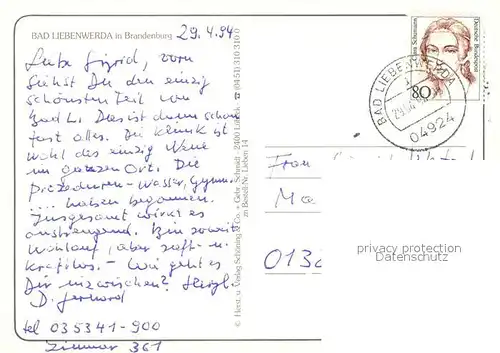 BAD LIEBENWERDA in Brandenburg
29.4.94
Liebe Sigrid, vorn
siehst Du den einzig
schönsten Teil von
Bad Li. Dies ist dann schon
fast alles. Die Klinik ist
wohl das einzig Neue
im ganzen Ort. Die
Prozeduren - Wasser, Gymn.
.... haben begonnen.
Insgesamt wirkt es
anstrengend. Bin soweit
wohlauf, aber saft- u.
kraftlos. - Wie geht es
Dir inzwischen? Herzl.
D. Gerhard
tel 035341-900
Zimmer 361
© Herst. u. Verlag Schöning & Co. + Gebr. Schmidt · 2400 Lübeck ☎ (04 51) 310 31 0
zu Bestell-Nr. Lieben 14
Deutsche Bundespost
80
BAD LIEBENWERDA
04924
Frau
Ma
013
privacy protection
Datenschutz